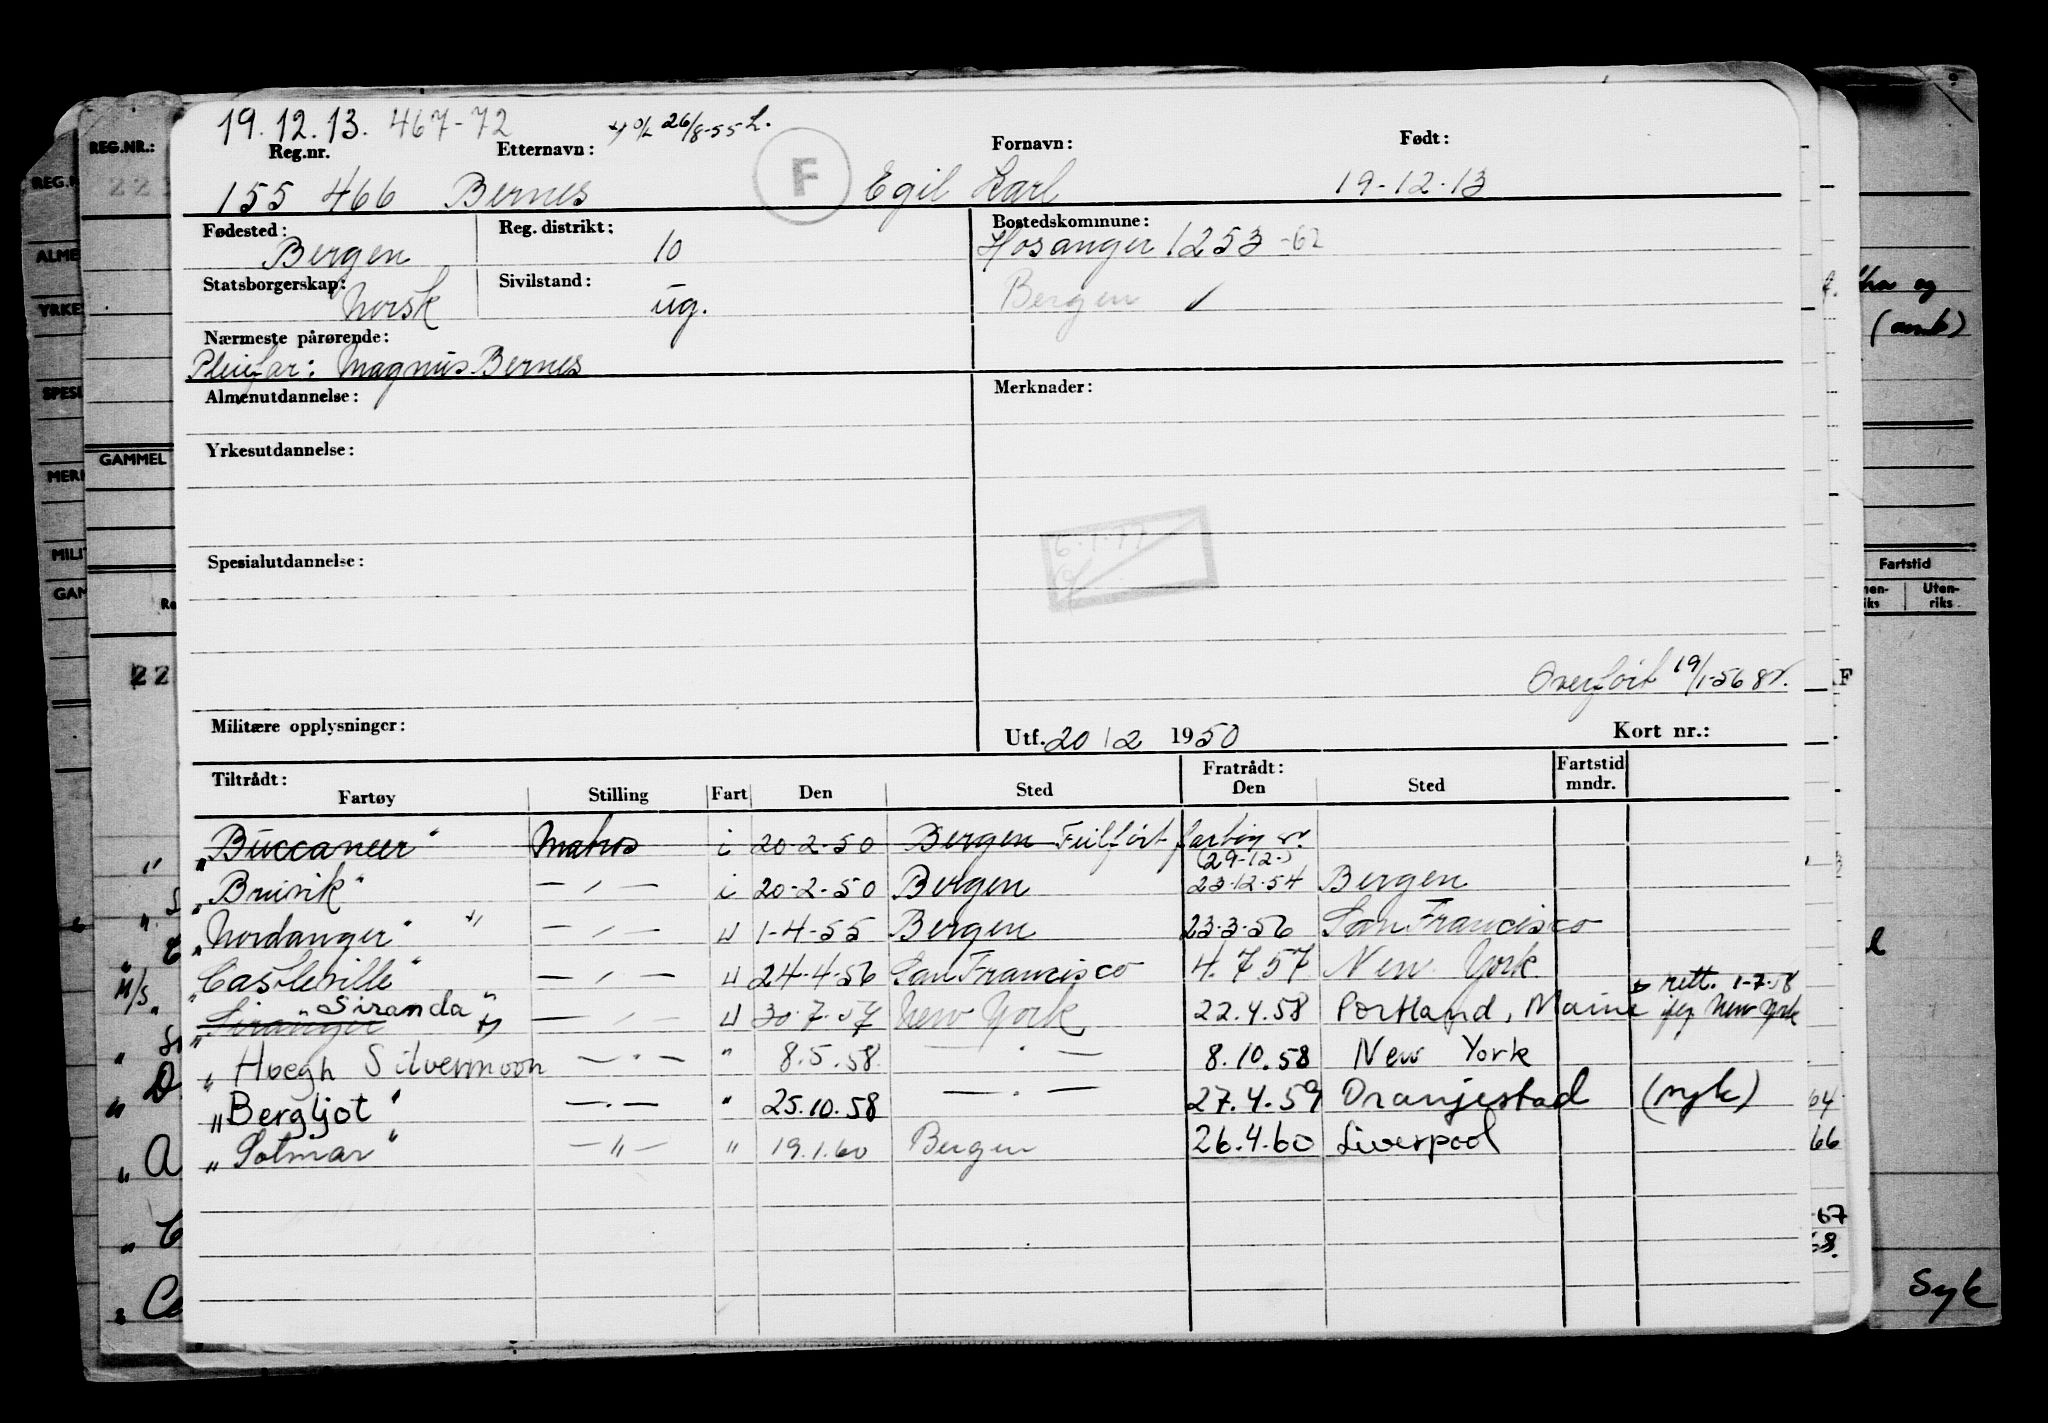 19.12.13. 467-72 26/8-55 L.
Reg.nr. Etternavn: Fornavn: Født:
155 466 Bernes F Egil Karl 19-12-13
Fødested: Reg. distrikt: Bostedskommune:
Bergen 10 Hosanger 1253 -62
Statsborgerskap: Sivilstand:
Norsk ug. Bergen
Nærmeste pårørende:
Pleiefar: Magnus Bernes
Almenutdannelse: Merknader:
Yrkesutdannelse:
Spesialutdannelse:
Overført 19/1-56
Militære opplysninger: Utf. 20/2 1950 Kort nr.:
Tiltrådt: Fratrådt: Fartstid
Fartøy Stilling Fart Den Sted Den Sted mndr.
"Buccaneer" Matros i 20-2-50 Bergen Feilført fartøy
(29-12-)
"Bruvik" — " — i 20-2-50 Bergen 23-12-54 Bergen
"Nordanger" — " — u 1-4-55 Bergen 23-3-56 San Francisco
"Castleville" — " — u 24-4-56 San Francisco 4.7 57 New York
rett. 1-7-58
"Siranger" Siranda" — " — u 30-7-57 New York 22.4.58 Portland, Maine New York
" Hoegh Silvermoon — " — " 8.5.58. — " — 8.10.58 New York
"Bergljot" — " — " 25.10.58 — " — 27.4.59 Oranjestad (syk)
"Solmar" — " — " 19.1.60 Bergen 26.4.60 Liverpool
REG.NR.:
GAMMEL
Fartstid
Uten-
riks
(amb)
66
67
68.
Syk